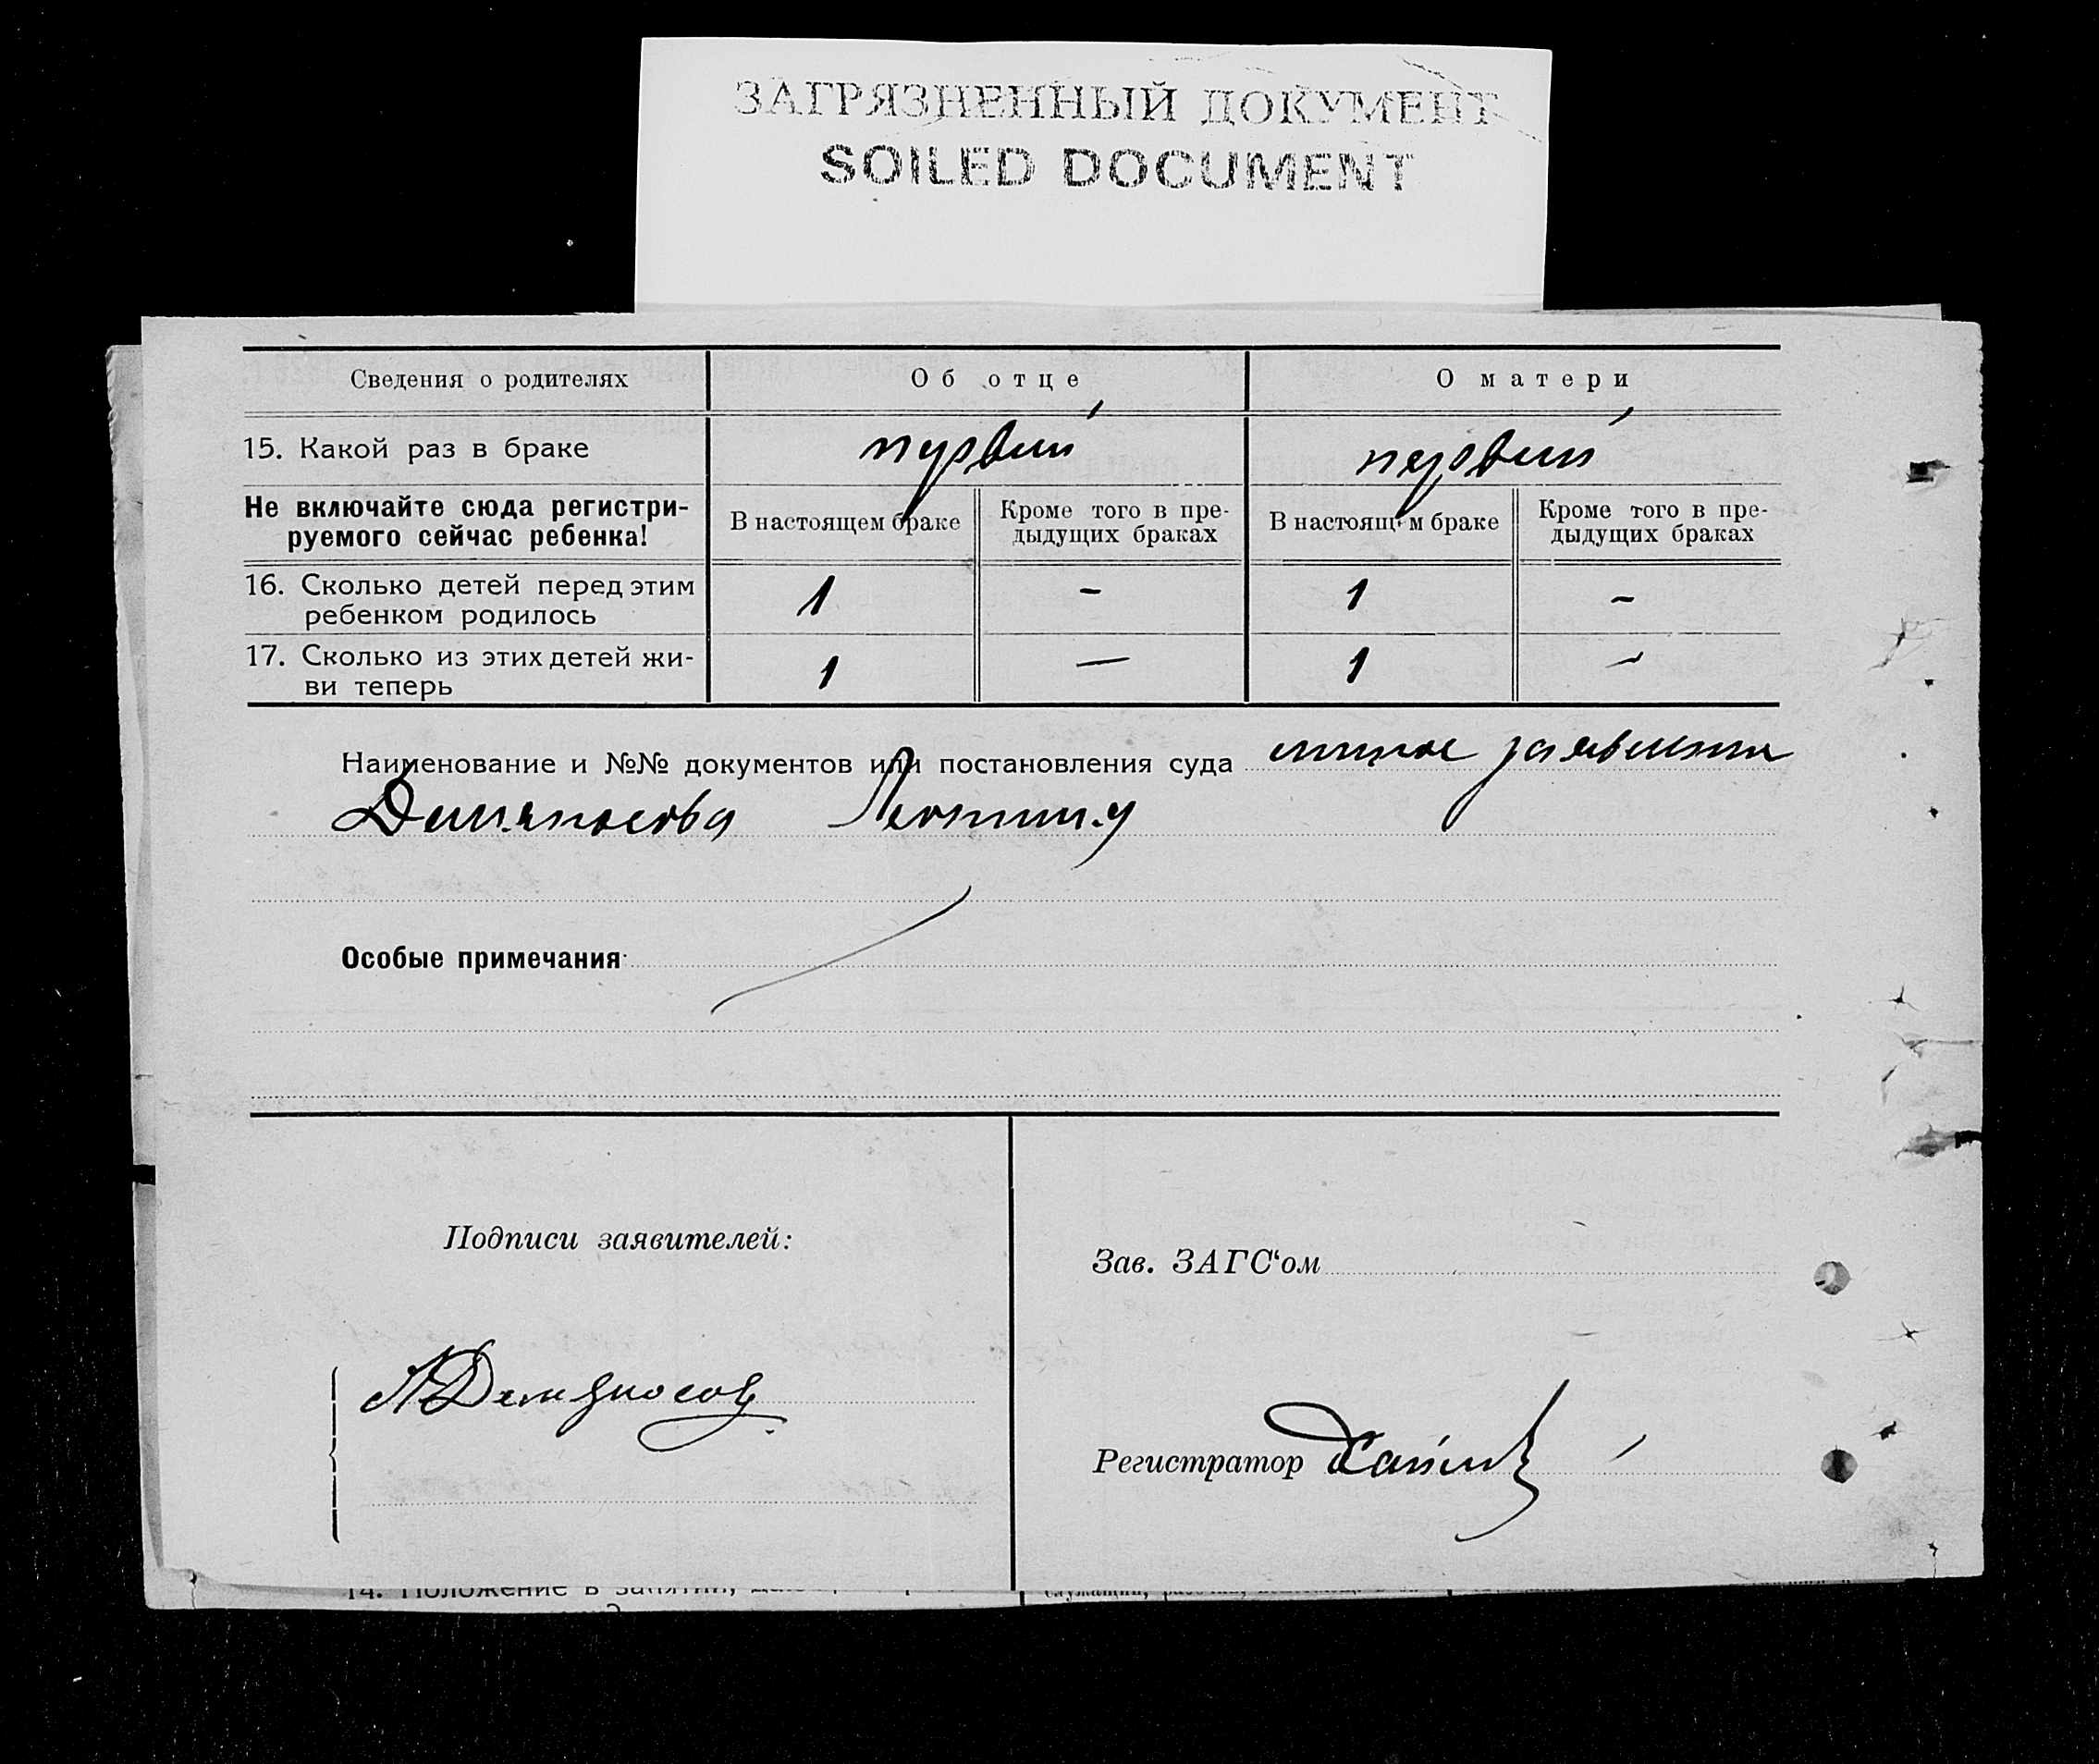 ЗАГРЯЗНЕННЫЙ ДОКУМЕНТ
SOILED DOCUMENT
Сведения о родителях Об отце О матери
15. Какой раз в браке первый первый
Не включайте сюда регистри-
руемого сейчас ребенка!
В настоящем браке
Кроме того в пре-
дыдущих браках
В настоящем браке
Кроме того в пре-
дыдущих браках
16. Сколько детей перед этим
ребенком родилось
1 - 1 -
17. Сколько из этих детей жи-
ви теперь
1 — 1 -
Наименование и №№ документов или постановления суда личное заявление
Демяносова
Особые примечания:
Подписи заявителей:
Зав. ЗАГС‘ом
Демяносов
Регистратор
14. Положение в занятии,